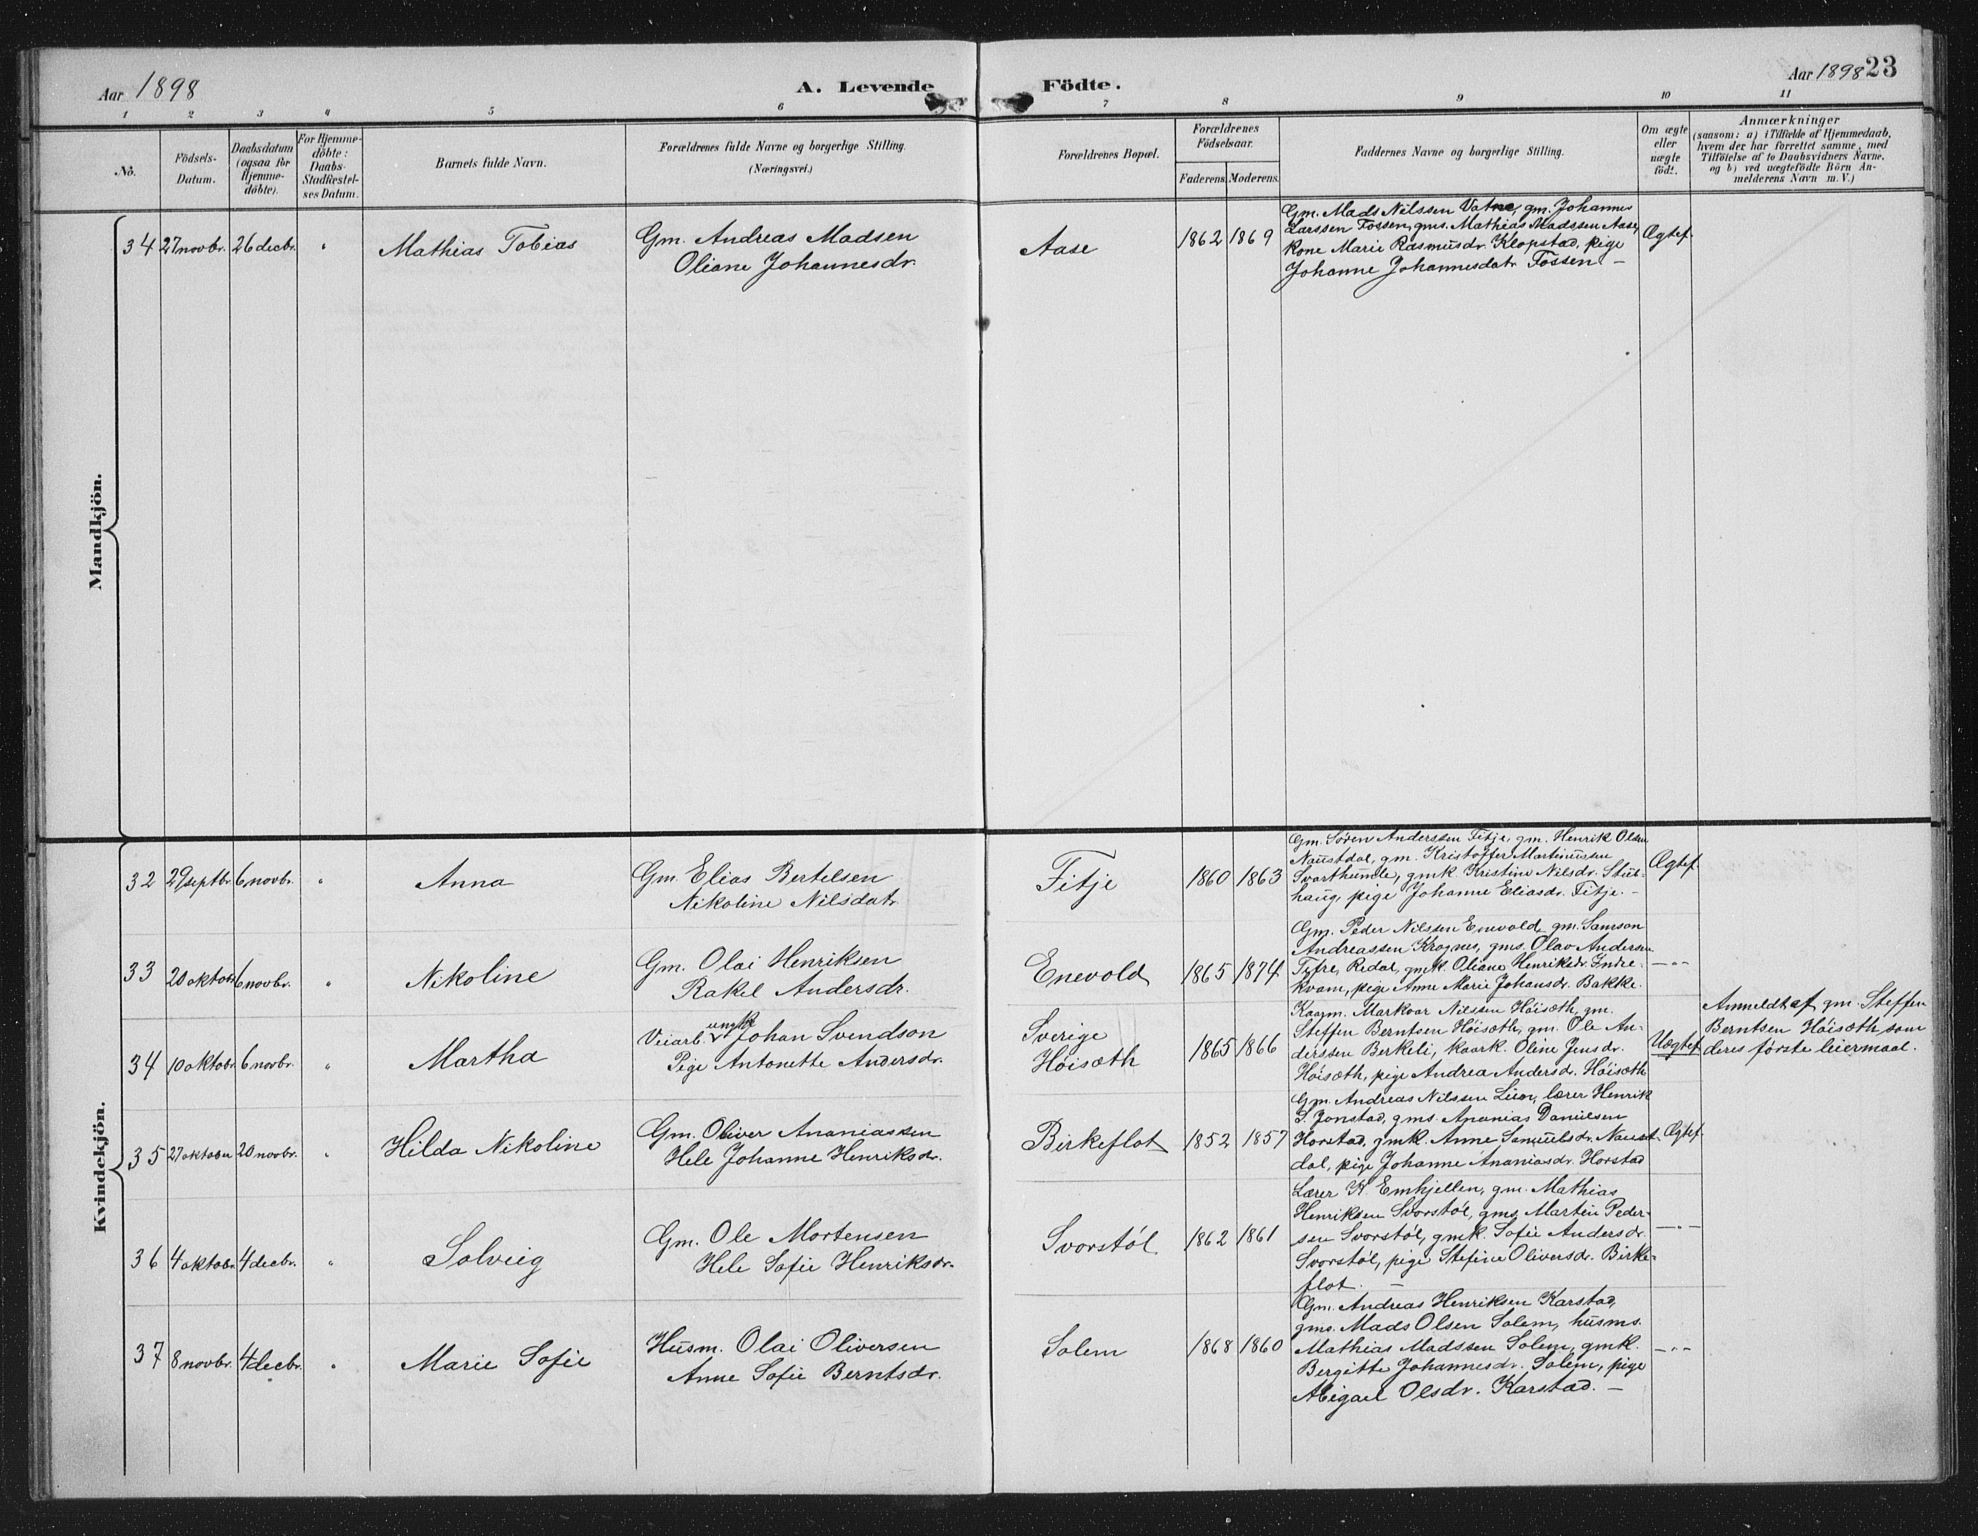 Aar 1898
A. Levende
Födte.
Aar 1898
23
1 2 3 4 5 6 7 8 9 10 11
No.
Födsels-
Datum.
Daabsdatum
(ogsaa for
Hjemme-
döbte).
For Hjemme-
döbte:
Daabs-
Stadfæstel-
ses Datum.
Barnets fulde Navn.
Forældrenes fulde Navne og borgerlige Stilling.
(Næringsvei.)
Forældrenes Bopæl.
Forældrenes
Födselsaar.
Faderens. Moderens.
Faddernes Navne og borgerlige Stilling.
Om ægte
eller
uægte
födt.
Anmærkninger
(saasom: a) i Tilfælde af Hjemmedaab,
hvem der har forrettet samme, med
Tilföielse af to Daabsvidners Navne,
og b) ved uægtefödte Börn An-
melderens Navn m. V.)
Mandkjön.
34 27 novbr. 26 decbr. " Mathias Tobias
Gm. Andreas Madsen
Oliane Johannesdr.
Aase
1862 1869
Gm. Mads Nilssen Vatne, gm. Johannes
Larssen Fossen, gms. Mathias Madssen Aase,
kone Marie Rasmusdr. Klopstad, pige
Johanne Johannesdatr Fossen. –
Ægtef.
Kvindekjön.
32 29 septbr. 6 novbr. " Anna
Gm. Elias Bertelsen
Nikoline Nilsdatr.
Fitje
1860 1863
Gm. Sören Anderssen Fitje, gm. Henrik Olsen
Naustdal, gm. Kristoffer Martinussen
Svarthumle, gmk. Kristine Nilsdr. Stub-
haug, pige Johanne Eliasdr. Fitje. –
Ægtef.
33 20 oktobr. 6 novbr. " Nikoline
Gm. Olai Henriksen
Rakel Andersdr.
Enevold
1865 1874
Gm. Peder Nilssen Enevold, gm. Samson
Andreassen Krognes, gms. Olav Andersen
Tefre, Redal, gmk. Oliane Henriksdr. Indre-
kvam, pige Anne Marie Johansdr. Bakke.
– " –
34 10 oktobr. 6 novbr. " Martha
Veiarb. ungk. Johan Svendson
Pige Antonette Andersdr.
Sverige
Höisæth
1865 1866
Kaarm. Markvar Nilssen Höisæth, gm.
Steffen Berntsen Höisæth, gm. Ole An-
derssen Berkeli, kaark. Oline Jensdr.
Höisæth, pige Andrea Andersdr. Höisæth
Uægtef.
Anmeldt af gm. Steffen
Berntsen Höisæth som
deres første leiermaal.
35 27 oktober 20 novbr. " Hilda Nikoline
Gm. Oliver Ananiassen
Hele Johanne Henriksdr.
Birkeflot
1852 1857
Gm. Andreas Nilssen Lien, lærer Henrik
S. Jonstad, gms. Ananias Danielsen
Horstad, gmk. Anne Samuelsdr. Naust-
dal, pige Johanne Ananiasdr. Horstad
Ægtef.
36 4 oktobr. 4 decbr. " Solveig
Gm. Ole Mortensen
Hele Sofie Henriksdr.
Svorstøl
1862 1861
Lærer K. Emhjellen, gm. Mathias
Henriksen Svorstøl, gms. Martin Peder-
sen Svorstøl, gmk. Sofie Andersdr.
Svorstøl, pige Stefine Oliversdr. Birke-
flot. –
– " –
37 8 novbr. 4 decbr. " Marie Sofie
Husm. Olai Oliversen
Anne Sofie Berntsdr.
Solem
1868 1860
Gm. Andreas Henriksen Karstad,
gms. Mads Olsen Solem, husms.
Mathias Madssen Solem, gmk.
Bergitte Johannesdr. Solem, pige
Abigael Olsdr. Karstad. –
– " –